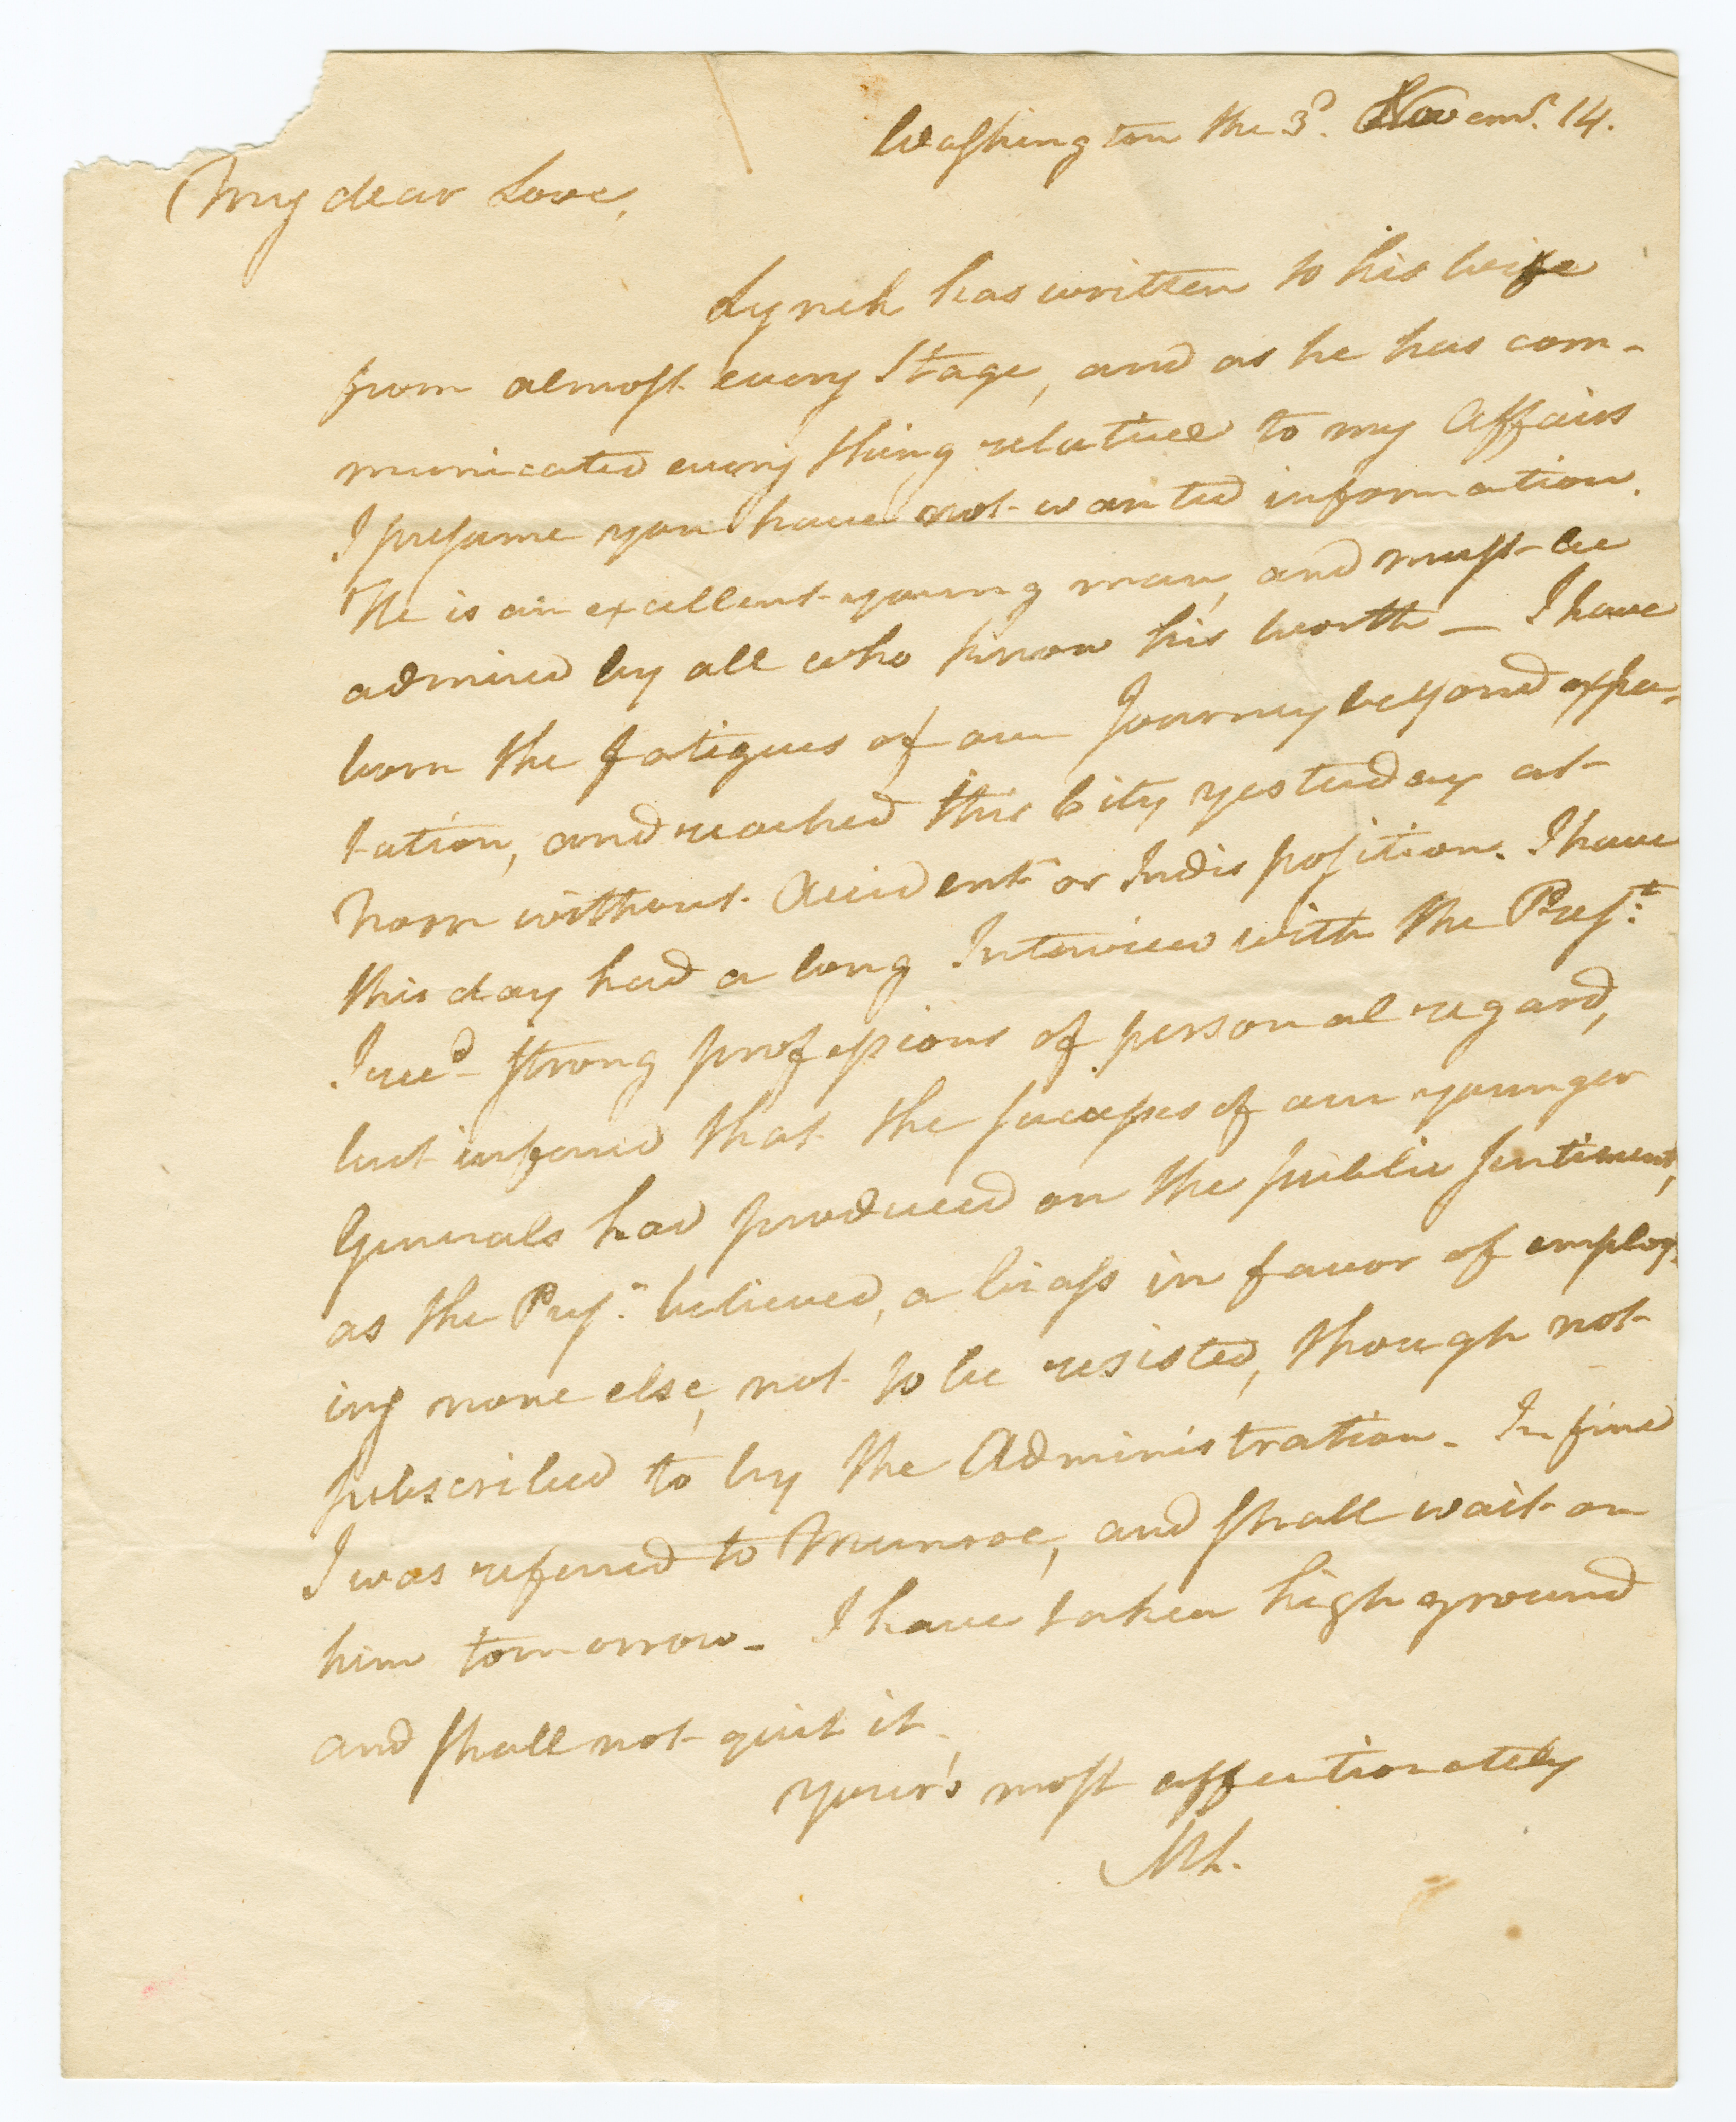 Washington the 3d. Novemr. 14.
My dear Love,
Lynch has written to his wife
from almost every Stage, and as he has com-
municated every thing relative to my Affairs
I presume you have not wanted information.
He is an excellent young man, and must be
admired by all who know his worth — I have
born the fatigues of our Journey beyond expec-
tation, and reached this City yesterday at
Noon without Accident or Indisposition. I have
this day had a long Interview with the Prest.
I recd. strong professions of personal regard,
but inferred that the successes of our younger
Generals had produced on the public sentiment,
as the Prest. believed, a biass in favor of employ-
ing none else, not to be resisted, though not
subscribed to by the Administration. In fine
I was referred to Munroe, and shall wait on
him tomorrow. I have taken high ground
and shall not quit it.
your's most affectionately
ML.